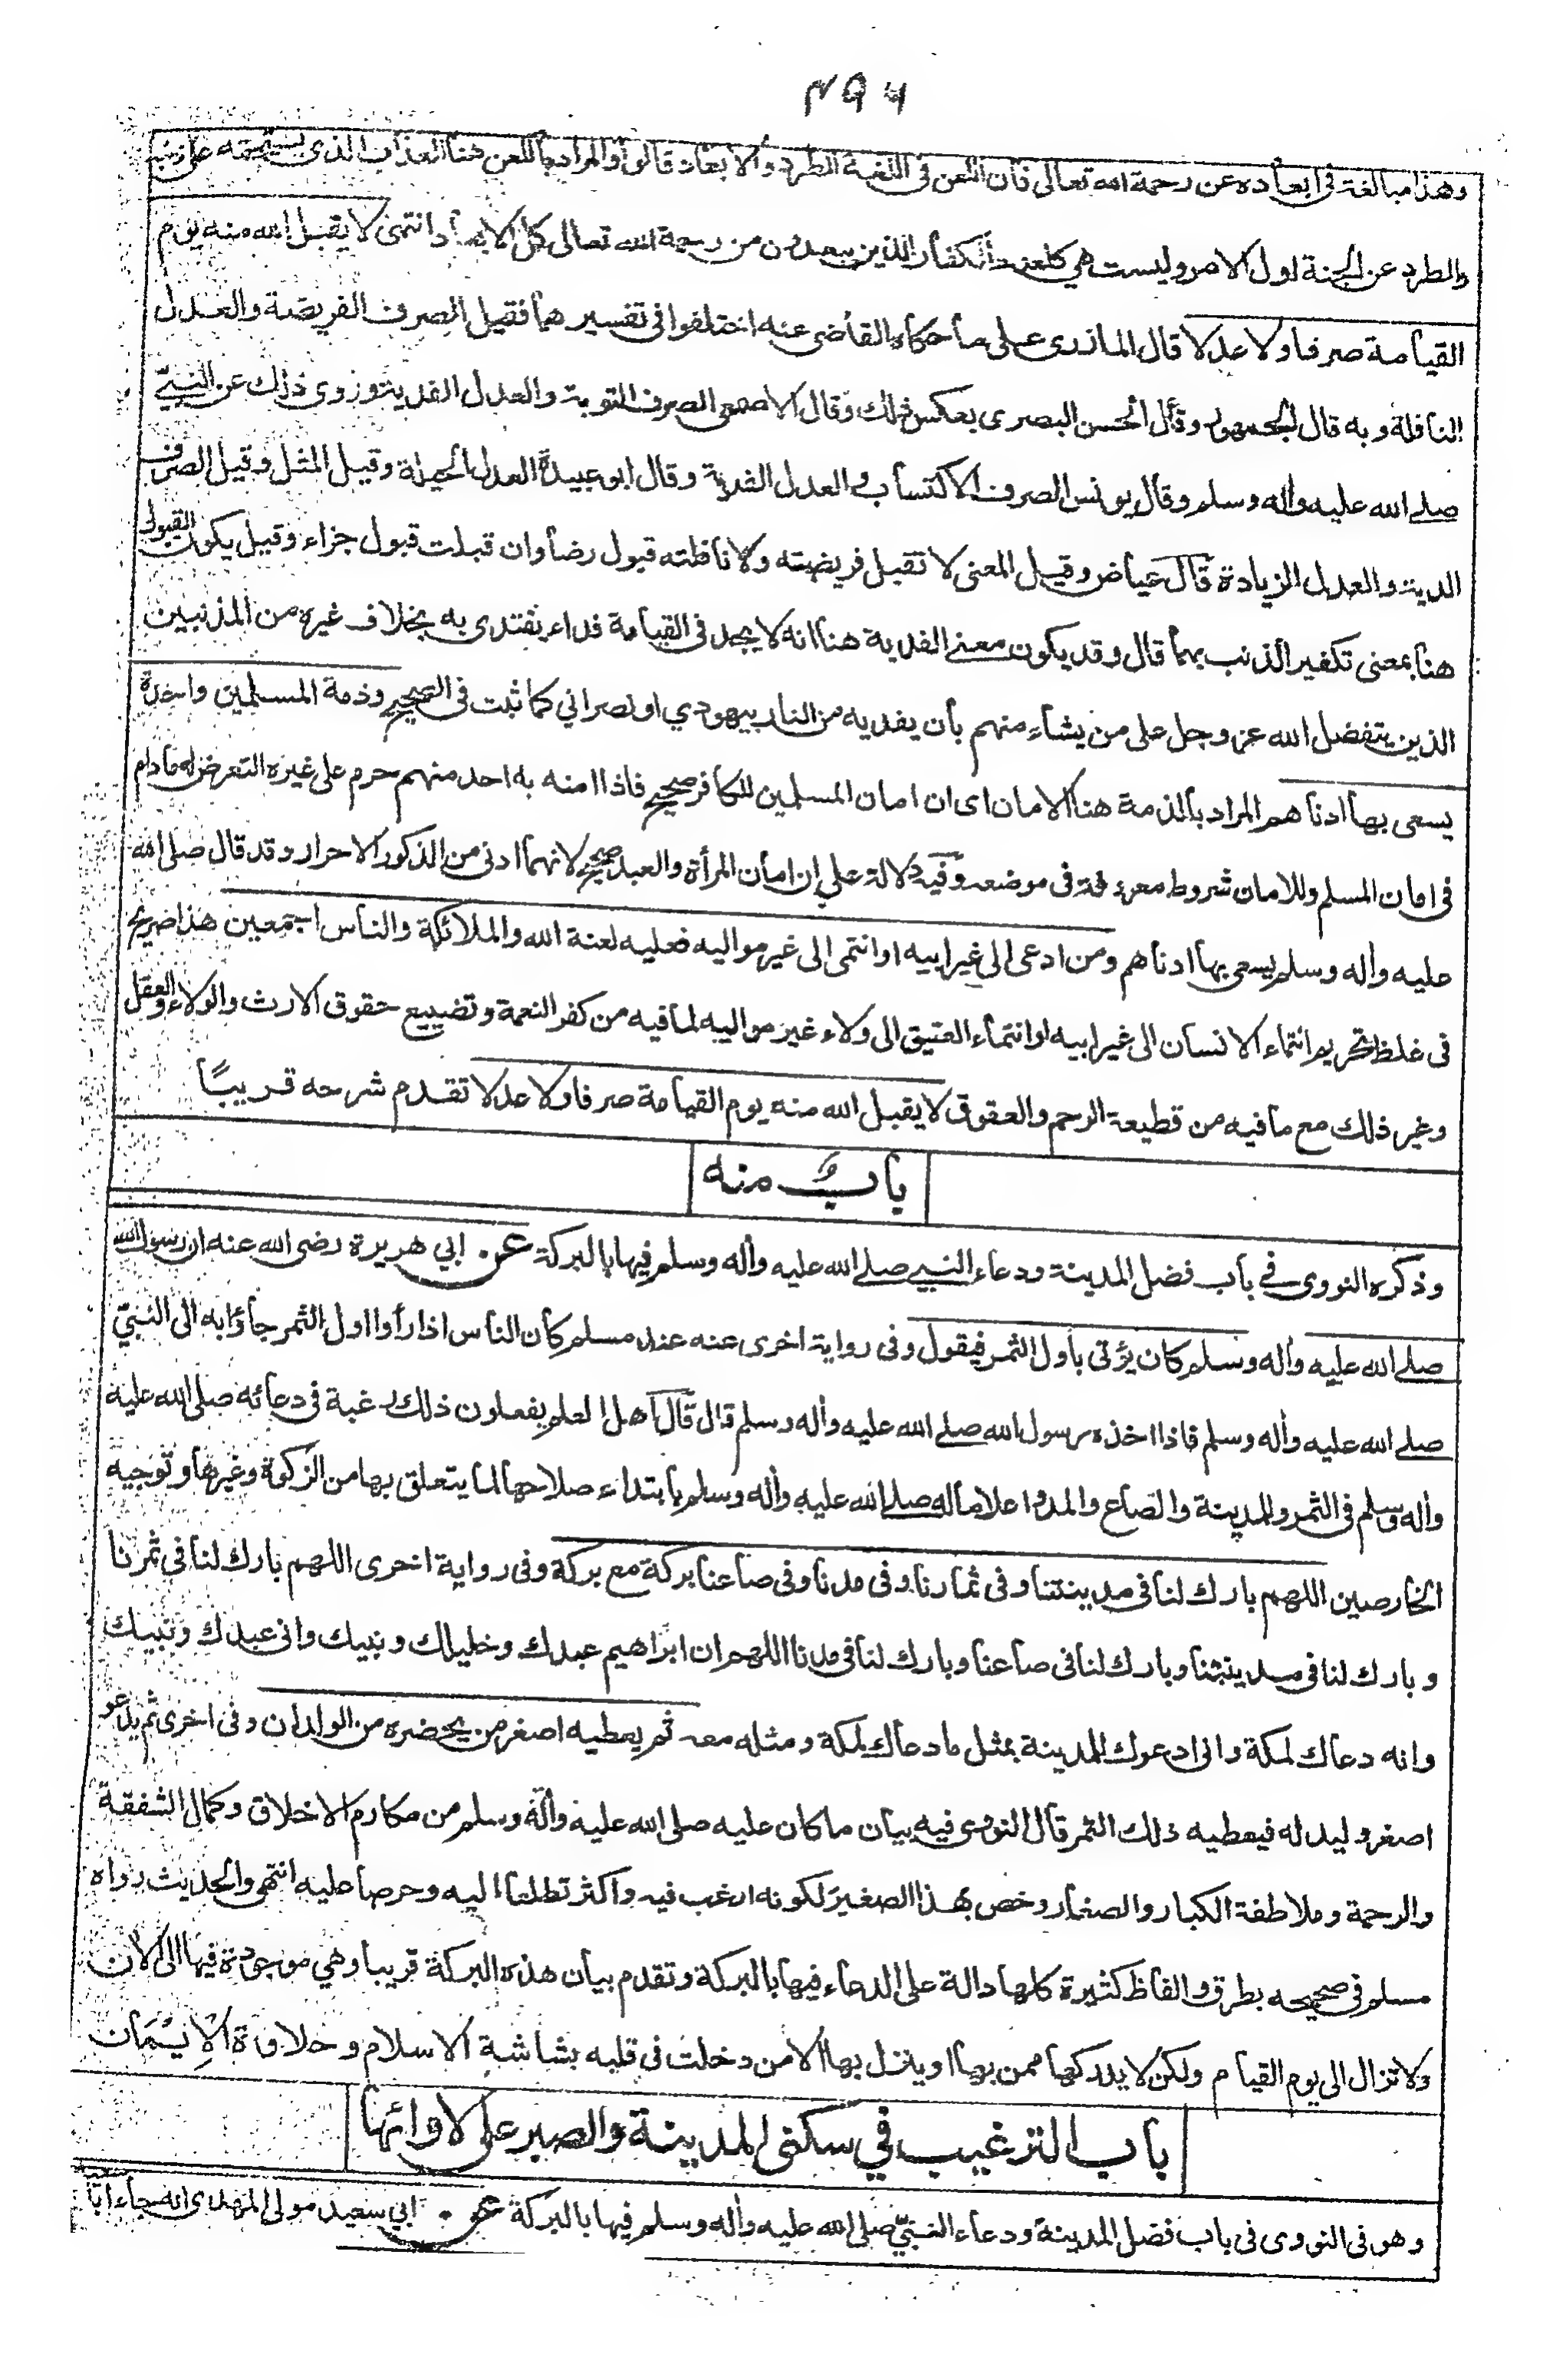 ٤٩٦
وهذا مبالغة فى ابعاده عن رحمة الله تعالى فان اللعن فى اللغة الطرد والابعاد قالوا والمراد باللعن هنا العذاب الذى يستحقه على ذنبه
والطرد عن الجنة اول الامر وليست هي كلعنة الكفار الذين يبعدون من رحمة الله تعالى كل الابعاد انتهى لا يقبل الله منه يوم
القيامة صرفا ولا عدلا قال المازرى على ما حكاه القاضى عنه اختلفوا فى تفسيرهما فقيل الصرف الفريضة والعدل
النافلة وبه قال الجمهور وقال الحسن البصرى بعكس ذلك وقال الاصمعى الصرف التوبة والعدل الفدية وروى ذلك عن النبيّ
صلے الله عليه واٰله وسلم وقال يونس الصرف الاكتساب والعدل الفدية وقال ابو عبيدة العدل الحيلة وقيل المثل وقيل الصرف
الدية والعدل الزيادة قال عياض وقيل المعنى لا تقبل فريضته ولا نافلته قبول رضا وان قبلت قبول جزاء وقيل يكون القبول
هنا بمعنى تكفير الذنب بهما قال وقد يكون معنے الفدية هنا انه لا يجد فى القيامة فداء يفتدى به بخلاف غيره من المذنبين
الذين يتفضل الله عز وجل على من يشاء منهم بأن يفديه من النار بيهودي او نصراني كما ثبت فى الصحيح وذمة المسلمين واحدة
يسعى بها ادناهم المراد بالذمة هنا الامان اى ان امان المسلمين للكافر صحيح فاذا امنه به احد منهم حرم على غيره التعرض له مادام
فى امان المسلم وللامان شروط معروفة فى موضعه وفيه دلالة على ان امان المرأة والعبد صحيح لانهما ادنى من الذكور الاحرار وقد قال صلى الله
عليه واٰله وسلم يسعى بها ادناهم ومن ادعى الى غير ابيه او انتمى الى غير مواليه فعليه لعنة الله والملائكة والناس اجمعين هذا صريح
فى غلظ تحريم انتماء الانسان الى غير ابيه او انتماء العتيق الى ولاء غير مواليه لما فيه من كفر النعمة وتضييع حقوق الارث والولاء والعقل
وغير ذلك مع ما فيه من قطيعة الرحم والعقوق لا يقبل الله منه يوم القيامة صرفا ولا عدلا تقدم شرحه قريبًا
بابٌ منه
وذكره النووى فے باب فضل المدينة ودعاء النبي صلے الله عليه واٰله وسلم فيها بالبركة عن ابي هريرة رضى الله عنه ان رسول الله
صلے الله عليه واٰله وسلم كان يؤتى باول الثمر فيقول وفى رواية اخرى عنه عند مسلم كان الناس اذا رأوا اول الثمر جاؤا به الى النبيّ
صلے الله عليه واٰله وسلم فاذا اخذه رسول الله صلے الله عليه واٰله وسلم قال قال اهل العلم يفعلون ذلك رغبة فى دعائه صلى الله عليه
واٰله وسلم فى الثمر والمدينة والصاع والمد واعلاما له صلے الله عليه واٰله وسلم بابتداء صلاحها لما يتعلق بها من الزكوة وغيرها وتوجيه
الخارصين اللهم بارك لنا فى مدينتنا وفى ثمارنا وفى مدنا وفى صاعنا بركة مع بركة وفى رواية اخرى اللهم بارك لنا فى ثمرنا
وبارك لنا فى مدينتنا وبارك لنا فى صاعنا وبارك لنا فى مدنا اللهم ان ابراهيم عبدك وخليلك ونبيك وانى عبدك ونبيك
وانه دعاك لمكة وانى ادعوك للمدينة بمثل ما دعاك لمكة ومثله معه ثم يعطيه اصغر من يحضره من الولدان وفى اخرى ثم يدعو
اصغر وليد له فيعطيه ذلك الثمر قال النووى فيه بيان ما كان عليه صلى الله عليه واٰله وسلم من مكارم الاخلاق وكمال الشفقة
والرحمة وملاطفة الكبار والصغار وخص بهذا الصغير لكونه ارغب فيه واكثر تطلعا اليه وحرصا عليه انتهى والحديث رواه
مسلم فى صحيحه بطرق والفاظ كثيرة كلها دالة على الدعاء فيها بالبركة وتقدم بيان هذه البركة قريبا وهي موجودة فيها الى الاٰن
ولا تزال الى يوم القيام ولكن لا يدركها ممن بها او ينزل بها الا من دخلت فى قلبه بشاشة الاسلام وحلاوة الْاِيْمَان
باب الترغيب في سكنى المدينة والصبر على لاوائها
وهو فى النووى فى باب فضل المدينة ودعاء النبيّ صلى الله عليه واٰله وسلم فيها بالبركة عن ابي سعيد مولى المهدى انه جاء ابا